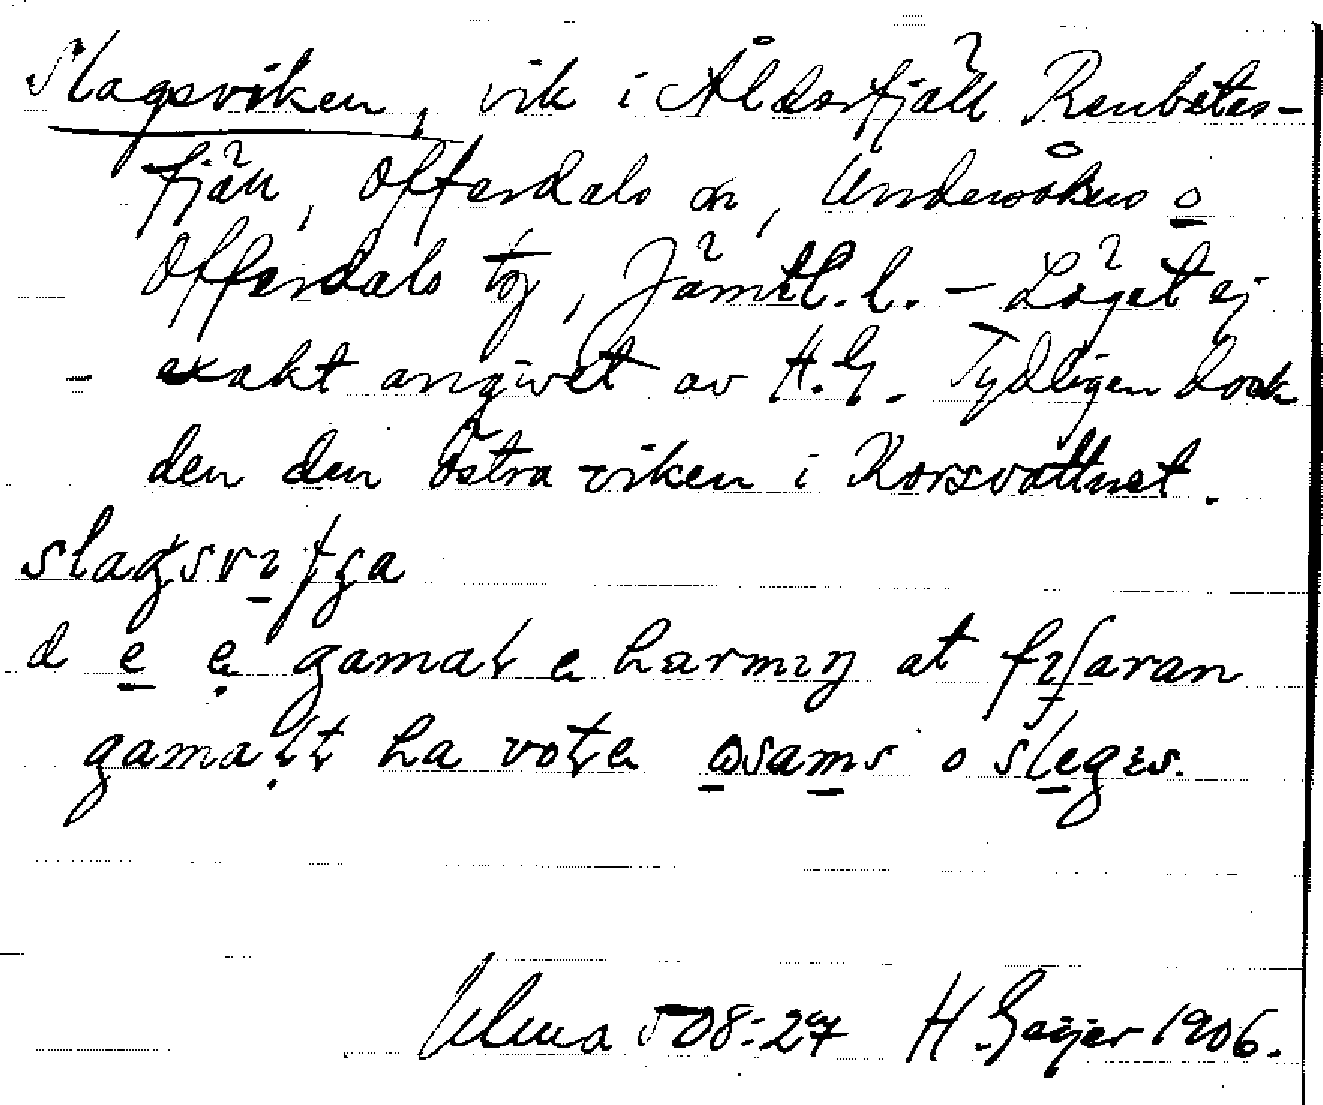 Slagsviken, vik i Ålderfjäll Renbetes-
fjäll, Offerdals sn, Undersåkers o
Offerdals tg, Jämtl. l. - Läget ej
- exakt angivet av H.G. Tydligen dock
den den östra viken i Korsvattnet.
slagsv
d e e gamal e harmıŋ at
gamalt ha vote osams o sleges.
Ulma 508:27 H. Geijer 1906.